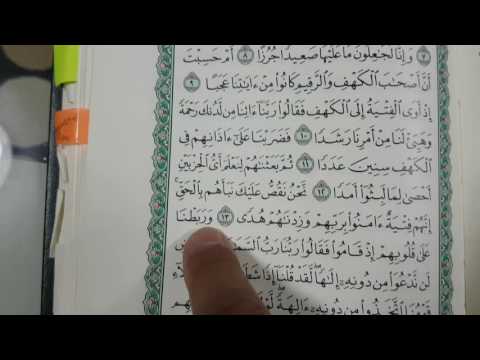 ٧ وَإِنَّا لَجَٰعِلُونَ مَا عَلَيْهَا صَعِيدًا جُرُزًا ٨ أَمْ حَسِبْتَ
أَنَّ أَصْحَٰبَ ٱلْكَهْفِ وَٱلرَّقِيمِ كَانُوا۟ مِنْ ءَايَٰتِنَا عَجَبًا ٩
إِذْ أَوَى ٱلْفِتْيَةُ إِلَى ٱلْكَهْفِ فَقَالُوا۟ رَبَّنَآ ءَاتِنَا مِن لَّدُنكَ رَحْمَةً
وَهَيِّئْ لَنَا مِنْ أَمْرِنَا رَشَدًا ١٠ فَضَرَبْنَا عَلَىٰٓ ءَاذَانِهِمْ فِى
ٱلْكَهْفِ سِنِينَ عَدَدًا ١١ ثُمَّ بَعَثْنَٰهُمْ لِنَعْلَمَ أَىُّ ٱلْحِزْبَيْنِ
أَحْصَىٰ لِمَا لَبِثُوٓا۟ أَمَدًا ١٢ نَّحْنُ نَقُصُّ عَلَيْكَ نَبَأَهُم بِٱلْحَقِّ
إِنَّهُمْ فِتْيَةٌ ءَامَنُوا۟ بِرَبِّهِمْ وَزِدْنَٰهُمْ هُدًى ١٣ وَرَبَطْنَا
عَلَىٰ قُلُوبِهِمْ إِذْ قَامُوا۟ فَقَالُوا۟ رَبُّنَا رَبُّ
لَن نَّدْعُوَا۟ مِن دُونِهِۦٓ إِلَٰهًا لَّقَدْ قُلْنَآ إِذًا
قَوْمُنَا ٱتَّخَذُوا۟ مِن دُونِهِۦٓ ءَالِهَةً